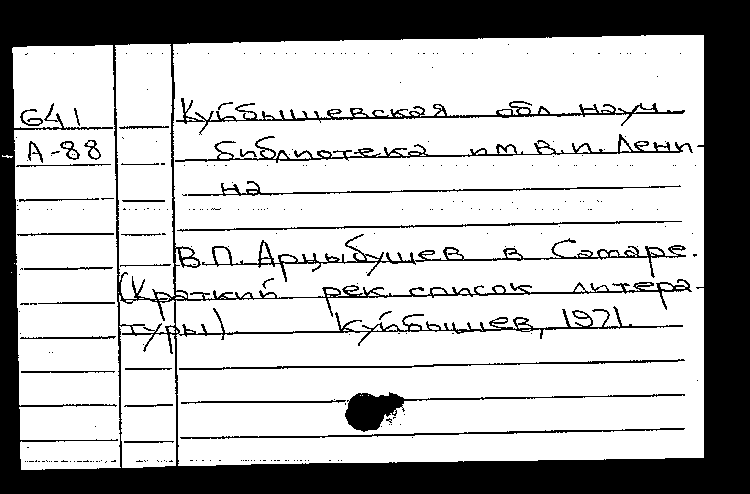 641 Куйбышевская обл. науч.
А-88 библиотека им. В.И. Лени-
на
В.П. Арцыбушев в Самаре.
(Краткий рек. список литера-
туры) Куйбышев, 1971.